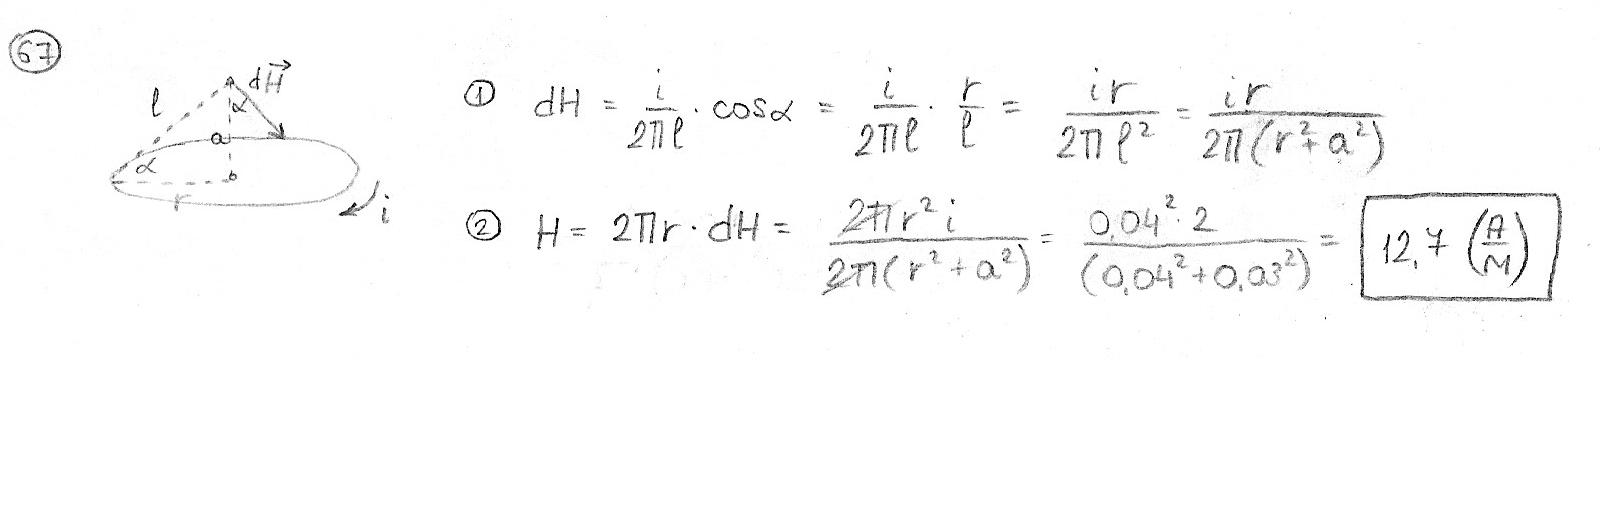 67
l dH⃗
α
a
α
r i
① dH = i/(2πl) · cosα = i/(2πl) · r/l = ir/(2πl²) = ir/(2π(r²+a²))
② H = 2πr · dH = 2πr²i/(2π(r²+a²)) = 0,04²·2/(0,04²+0,03²) = 12,7 (A/м)